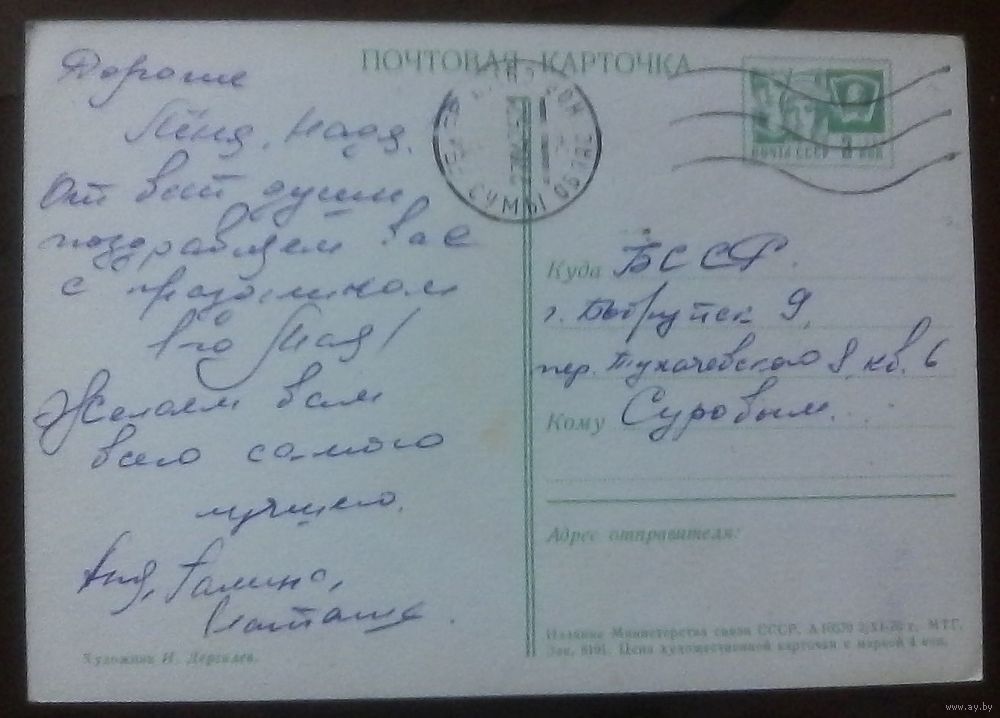 ПОЧТОВАЯ КАРТОЧКА
Дорогие
Лёня, Надя,
От всей души
поздравляем вас
с праздником
1го Мая!
Желаем вам
всего самого
лучшего.
Аня, Галина,
Наташа.
Художник И. Дергилев.
СУМЫ ОБЛ
ПОЧТА СССР 3 КОП
Куда БССР.
г. Бобруйск 9,
пер. Тухачевского 8, кв. 6
Кому Суровым.
Адрес отправителя:
Издание Министерства связи СССР. А 10570 2/XI-70 г. МТГ.
Зак. 8191. Цена художественной карточки с маркой 4 коп.
www.ay.by